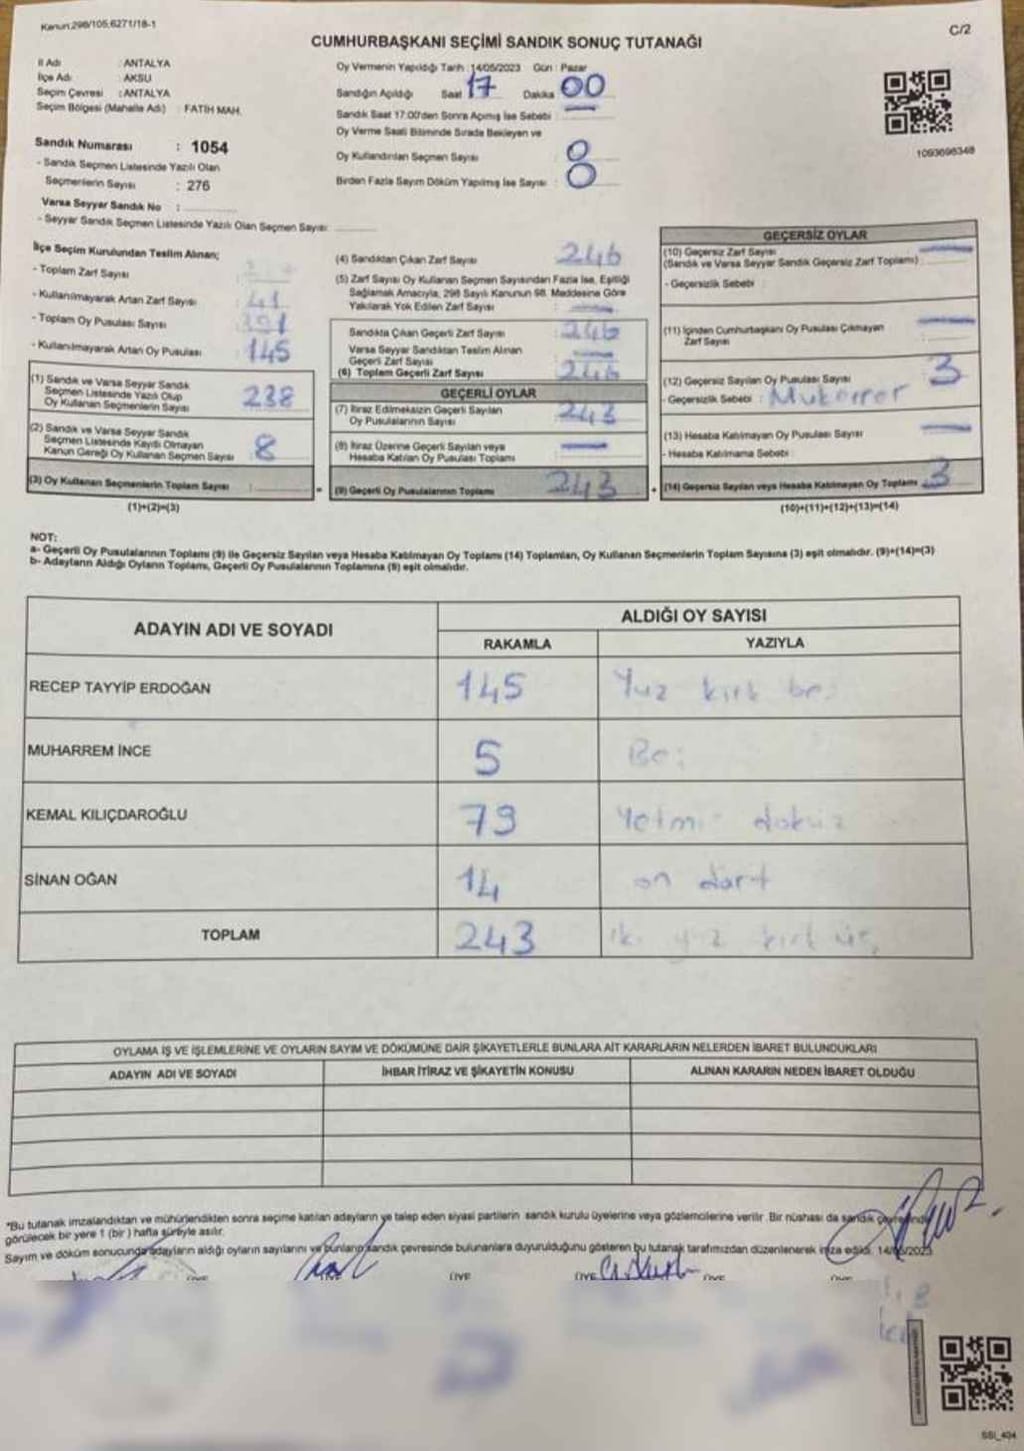 Kanun:298/105;6271/18-1
C/2
CUMHURBAŞKANI SEÇİMİ SANDIK SONUÇ TUTANAĞI
İl Adı : ANTALYA
İlçe Adı : AKSU
Seçim Çevresi : ANTALYA
Seçim Bölgesi (Mahalle Adı) : FATİH MAH.
Sandık Numarası : 1054
- Sandık Seçmen Listesinde Yazılı Olan
Seçmenlerin Sayısı : 276
Varsa Seyyar Sandık No :
- Seyyar Sandık Seçmen Listesinde Yazılı Olan Seçmen Sayısı:
Oy Vermenin Yapıldığı Tarih :14/05/2023 Gün : Pazar
Sandığın Açıldığı Saat 17 Dakika 00
Sandık Saat 17:00'den Sonra Açımış İse Sebebi :
Oy Verme Saati Bitiminde Sırada Bekleyen ve
Oy Kullandırılan Seçmen Sayısı
Birden Fazla Sayım Döküm Yapılmış İse Sayısı : 8
1093698348
İlçe Seçim Kurulundan Teslim Alınan;
- Toplam Zarf Sayısı
- Kullanılmayarak Artan Zarf Sayısı : 41
- Toplam Oy Pusulası Sayısı : 391
- Kullanılmayarak Artan Oy Pusulası : 145
(1) Sandık ve Varsa Seyyar Sandık
Seçmen Listesinde Yazılı Olup
Oy Kullanan Seçmenlerin Sayısı : 238
(2) Sandık ve Varsa Seyyar Sandık
Seçmen Listesinde Kaydı Olmayan
Kanun Gereği Oy Kullanan Seçmen Sayısı : 8
(3) Oy Kullanan Seçmenlerin Toplam Sayısı :
(1)+(2)=(3)
(4) Sandıktan Çıkan Zarf Sayısı : 246
(5) Zarf Sayısı Oy Kullanan Seçmen Sayısından Fazla İse, Eşitliği
Sağlamak Amacıyla, 298 Sayılı Kanunun 98. Maddesine Göre
Yakılarak Yok Edilen Zarf Sayısı :
Sandıkta Çıkan Geçerli Zarf Sayısı : 246
Varsa Seyyar Sandıktan Teslim Alınan
Geçerli Zarf Sayısı :
(6) Toplam Geçerli Zarf Sayısı : 246
GEÇERLİ OYLAR
(7) İtiraz Edilmeksizin Geçerli Sayılan
Oy Pusulalarının Sayısı : 243
(8) İtiraz Üzerine Geçerli Sayılan veya
Hesaba Katılan Oy Pusulası Toplamı :
(9) Geçerli Oy Pusulalarının Toplamı 243
GEÇERSİZ OYLAR
(10) Geçersiz Zarf Sayısı
(Sandık ve Varsa Seyyar Sandık Geçersiz Zarf Toplamı) :
- Geçersizlik Sebebi :
(11) İçinden Cumhurbaşkanı Oy Pusulası Çıkmayan
Zarf Sayısı :
(12) Geçersiz Sayılan Oy Pusulası Sayısı : 3
- Geçersizlik Sebebi : Mükerrer
(13) Hesaba Katılmayan Oy Pusulası Sayısı :
- Hesaba Katılmama Sebebi :
(14) Geçersiz Sayılan veya Hesaba Katılmayan Oy Toplamı : 3
(10)+(11)+(12)+(13)=(14)
NOT:
a- Geçerli Oy Pusulalarının Toplamı (9) ile Geçersiz Sayılan veya Hesaba Katılmayan Oy Toplamı (14) Toplamları, Oy Kullanan Seçmenlerin Toplam Sayısına (3) eşit olmalıdır. (9)+(14)=(3)
b- Adayların Aldığı Oyların Toplamı, Geçerli Oy Pusulalarının Toplamına (9) eşit olmalıdır.
ADAYIN ADI VE SOYADI
ALDIĞI OY SAYISI
RAKAMLA YAZIYLA
RECEP TAYYİP ERDOĞAN 145 Yüz kırk be
MUHARREM İNCE 5 Be
KEMAL KILIÇDAROĞLU 79 Yetmi dokuz
SİNAN OĞAN 14 on dört
TOPLAM 243 iki yüz kırk üç
OYLAMA İŞ VE İŞLEMLERİNE VE OYLARIN SAYIM VE DÖKÜMÜNE DAİR ŞİKAYETLERLE BUNLARA AİT KARARLARIN NELERDEN İBARET BULUNDUKLARI
ADAYIN ADI VE SOYADI İHBAR İTİRAZ VE ŞİKAYETİN KONUSU ALINAN KARARIN NEDEN İBARET OLDUĞU
*Bu tutanak imzalandıktan ve mühürlendikten sonra seçime katılan adayların ve talep eden siyasi partilerin sandık kurulu üyelerine veya gözlemcilerine verilir. Bir nüshası da sandık çevresinde
görülecek bir yere 1 (bir) hafta süreyle asılır.
Sayım ve döküm sonucunda adayların aldığı oyların sayılarını ve bunların sandık çevresinde bulunanlara duyurulduğunu gösteren bu tutanak tarafımızdan düzenlenerek imza edildi. 14/05/2023
ÜYE ÜYE ÜYE ÜYE
SSI_404